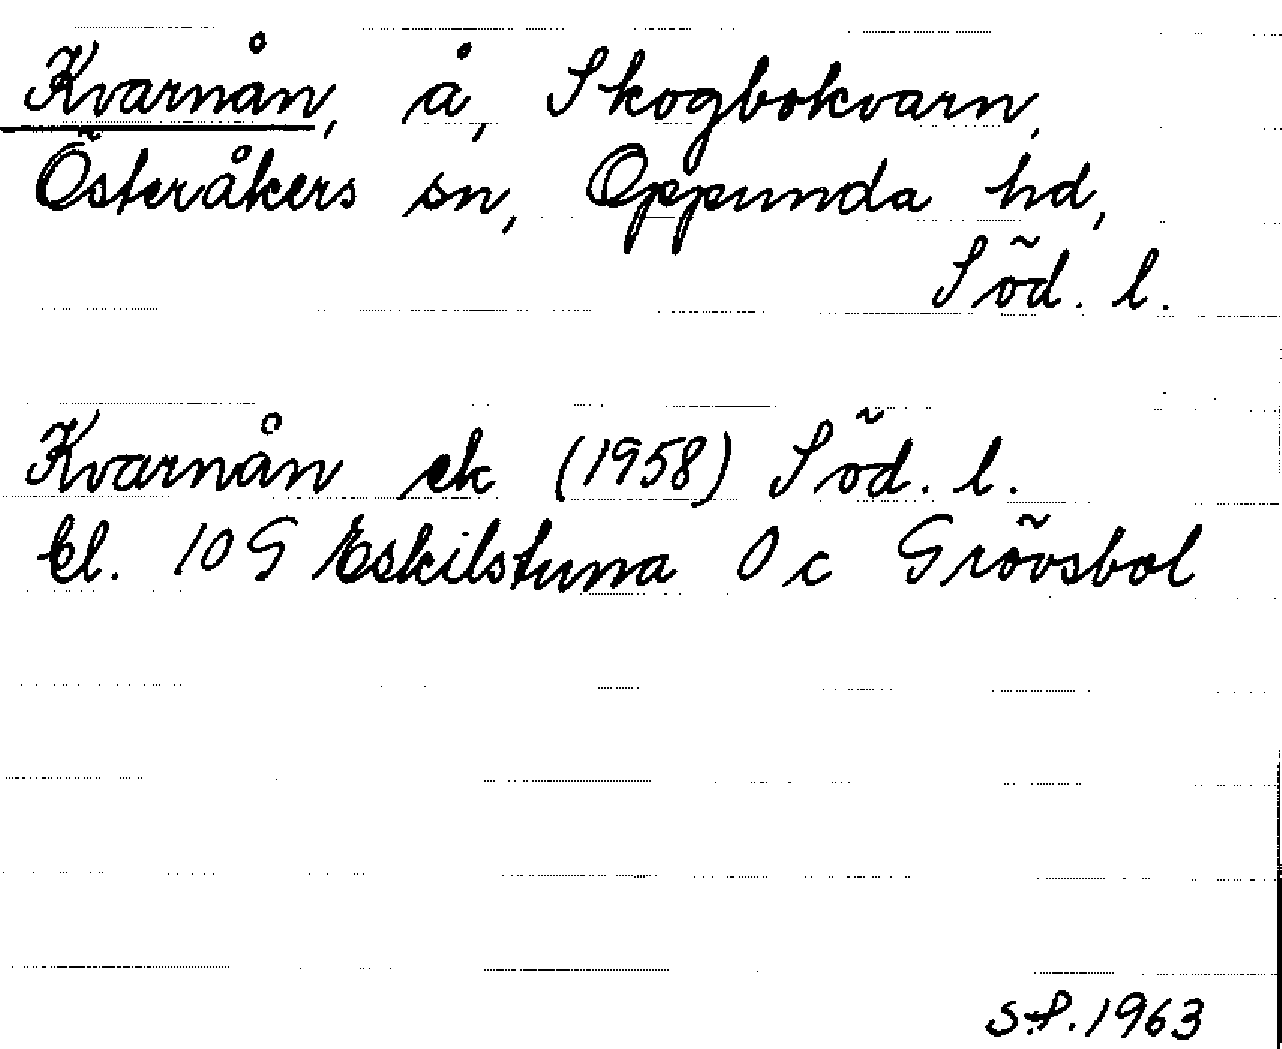 Kvarnån, å, Skogbokvarn,
Österåkers sn, Oppunda hd,
Söd. l.
Kvarnån ek (1958) Söd. l.
bl. 10 G Eskilstuna 0 c Grövsbol
S.P. 1963